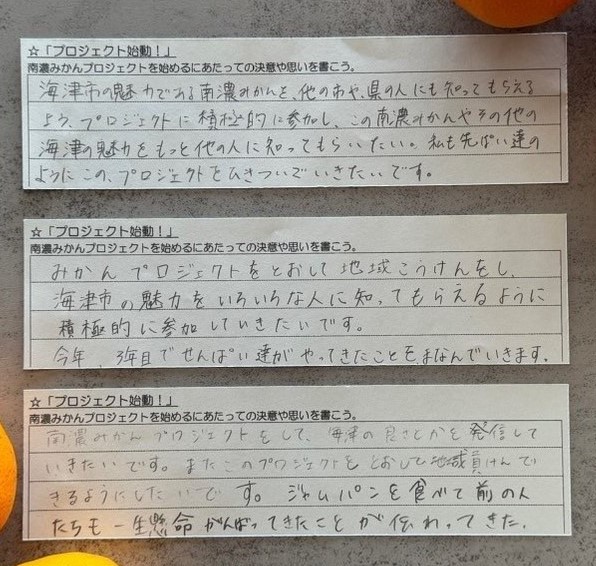 ☆「プロジェクト始動!」
南濃みかんプロジェクトを始めるにあたっての決意や思いを書こう。
海津市の魅力である南濃みかんを、他の市や、県の人にも知ってもらえる
よう、プロジェクトに積極的に参加し、この南濃みかんやその他の
海津の魅力をもっと他の人に知ってもらいたい。私も先ぱい達の
ようにこの、プロジェクトをひきついでいきたいです。
☆「プロジェクト始動!」
南濃みかんプロジェクトを始めるにあたっての決意や思いを書こう。
みかんプロジェクトをとおして地域こうけんをし、
海津市の魅力をいろいろな人に知ってもらえるように
積極的に参加していきたいです。
今年、3年目でせんぱい達がやってきたことをまなんでいきます.
☆「プロジェクト始動!」
南濃みかんプロジェクトを始めるにあたっての決意や思いを書こう。
南濃みかんプロジェクトをして、海津の良さとかを発信して
いきたいです。またこのプロジェクトをとおして地域貢けんで
きるようにしたいです。ジャムパンを食べて前の人
たちも一生懸命がんばってきたことが伝わってきた.